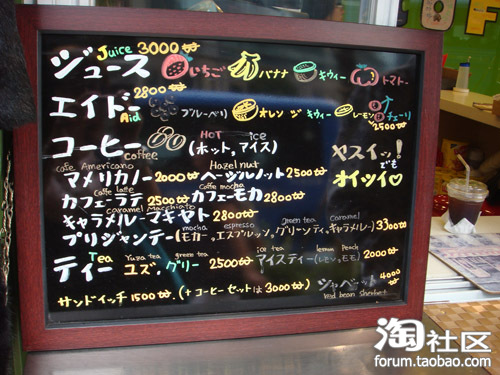 Juice 3000₩
ジュース いちご バナナ キウィー トマトー
2800₩
エイドー Aid ブルーベリ オレンヂ キウィー レーモン チェーリ 2500₩
コーヒー Coffee HOT ice (ホット,アイス)
ヤスイッ! でも オイシイ♡
cafe Americano Hazel nut
アメリカノー 2000₩ ヘージルノット 2500₩
caffe latte Caffe mocha
カフェーラテ 2500₩ カフェーモカ 2800₩
caramel Macchiato
キャラメルーマキヤト 2800₩
mocha espresso green tea caramel
プリジャンテー(モカー,エスプレッソ,グリーンティ,キャラメルー) 3300₩
Tea Yuza tea green tea ice tea lemon Peach
ティー ユズ,グリー 2500₩ アイスティー(レモン,モモ) 2000₩
サンドイッチ 1500₩ (+コーヒーセットは 3000₩)
シャベット 4000₩
Red bean sherbet
淘社区
forum.taobao.com